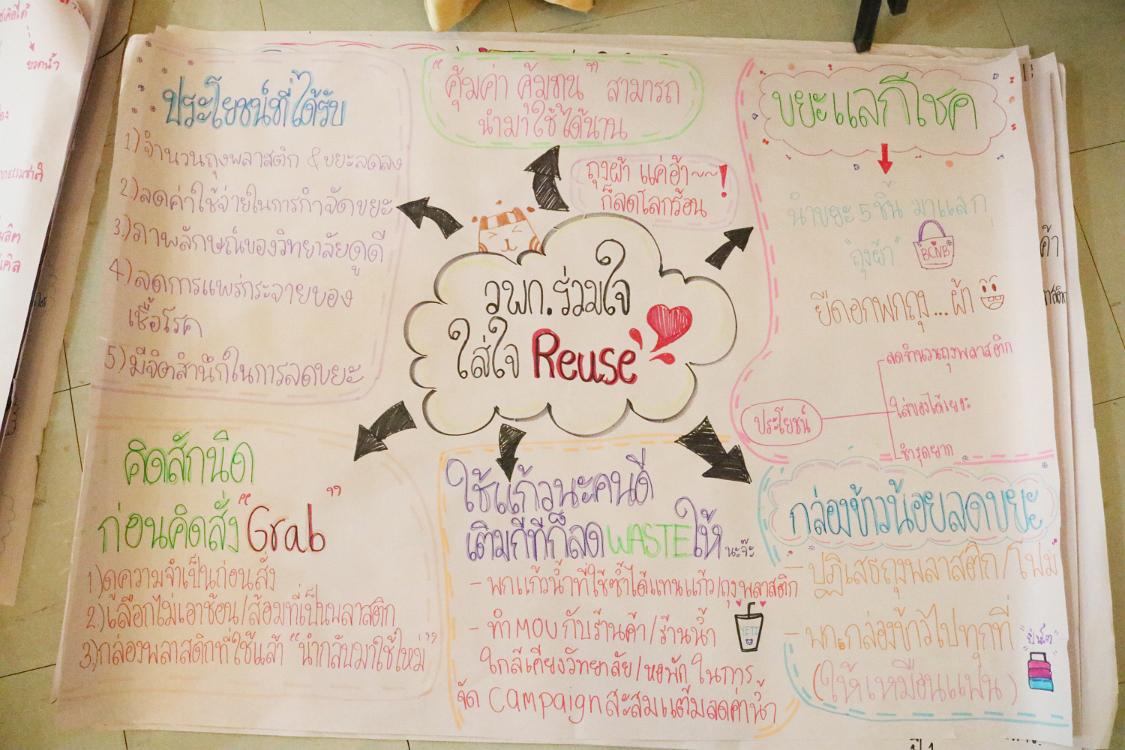 วพก.ร่วมใจ
ใส่ใจ Reuse
"คุ้มค่า คุ้มขนุน" สามารถ
นำมาใช้ได้นาน
ถุงผ้า แค่อ้า~~!
ก็ลดโลกร้อน
ประโยชน์ที่ได้รับ
1) จำนวนถุงพลาสติก & ขยะลดลง
2) ลดค่าใช้จ่ายในการกำจัดขยะ
3) ภาพลักษณ์ของวิทยาลัยดูดี
4) ลดการแพร่กระจายของ
เชื้อโรค
5) มีจิตสำนึกในการลดขยะ
ขยะแลกโชค
นำขยะ 5 ชิ้น มาแลก
"ถุงผ้า"
BCNB
ยืดอกพกถุง...ผ้า
ประโยชน์
ลดจำนวนถุงพลาสติก
ใส่ของได้เยอะ
ชำรุดยาก
คิดสักนิด
ก่อนคิดสั่ง "Grab"
1) ดูความจำเป็นก่อนสั่ง
2) เลือกไม่เอาช้อน/ส้อมที่เป็นพลาสติก
3) กล่องพลาสติกที่ใช้แล้ว "นำกลับมาใช้ใหม่"
ใช้แก้วนะคนดี
เติมกี่ทีก็ลด WASTE ให้ นะจ๊ะ
- พกแก้วน้ำที่ใช้ซ้ำได้แทนแก้ว/ถุงพลาสติก
- ทำ MOU กับร้านค้า/ร้านน้ำ
ใกล้เคียงวิทยาลัย/หอพัก ในการ
จัด Campaign สะสมแต้มลดค่าน้ำ
กล่องข้าวน้อยลดขยะ
- ปฏิเสธถุงพลาสติก/โฟม
- พกกล่องข้าวไปทุกที่
(ให้เหมือนแฟน)
"ปิ่นโต"